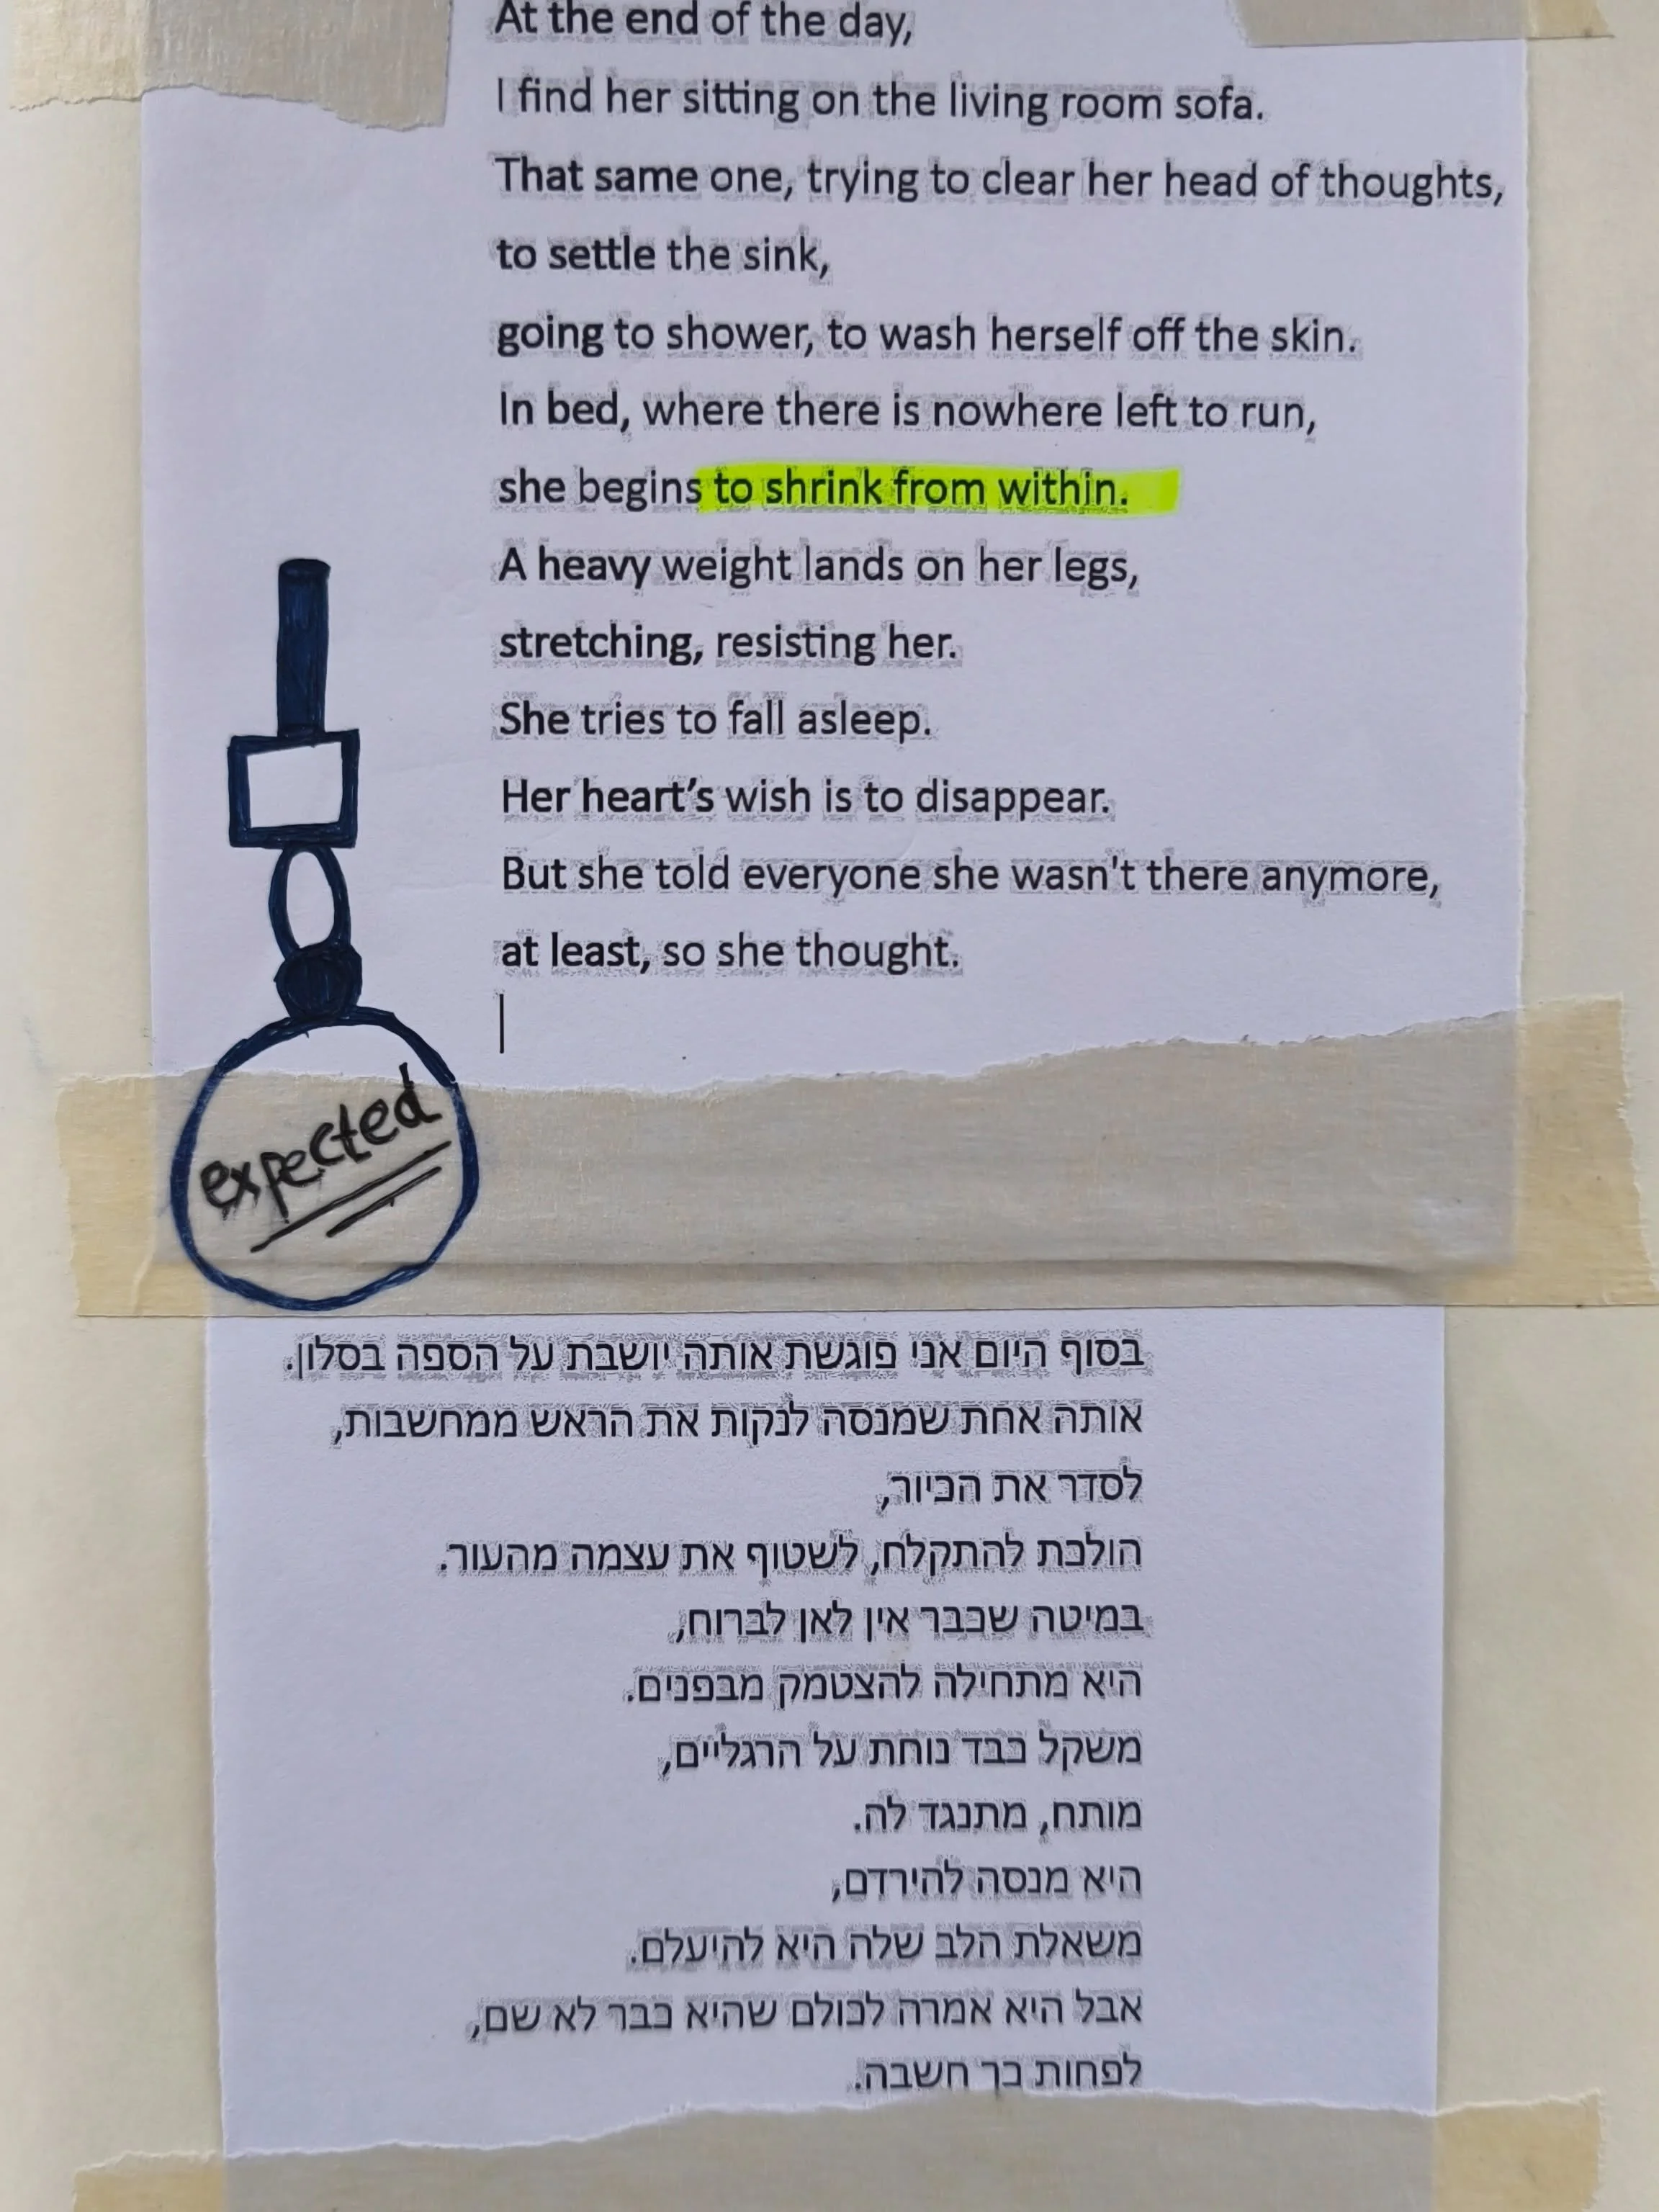 At the end of the day,
I find her sitting on the living room sofa.
That same one, trying to clear her head of thoughts,
to settle the sink,
going to shower, to wash herself off the skin.
In bed, where there is nowhere left to run,
she begins to shrink from within.
A heavy weight lands on her legs,
stretching, resisting her.
She tries to fall asleep.
Her heart’s wish is to disappear.
But she told everyone she wasn't there anymore,
at least, so she thought.
expected
בסוף היום אני פוגשת אותה יושבת על הספה בסלון.
אותה אחת שמנסה לנקות את הראש ממחשבות,
לסדר את הכיור,
הולכת להתקלח, לשטוף את עצמה מהעור.
במיטה שכבר אין לאן לברוח,
היא מתחילה להצטמק מבפנים.
משקל כבד נוחת על הרגליים,
מותח, מתנגד לה.
היא מנסה להירדם,
משאלת הלב שלה היא להיעלם.
אבל היא אמרה לכולם שהיא כבר לא שם,
לפחות כך חשבה.